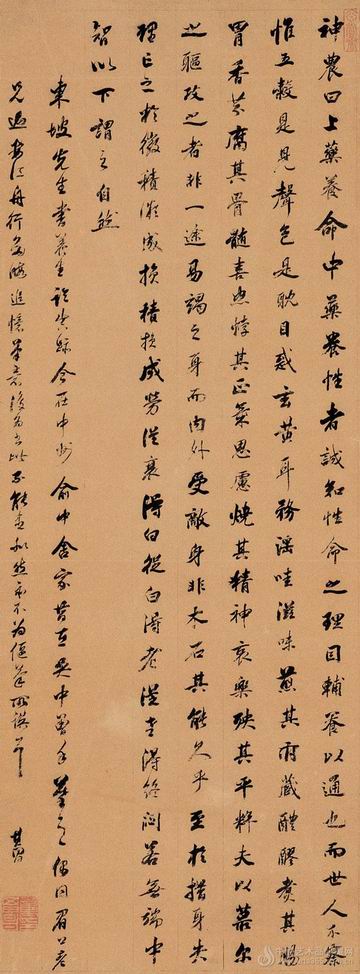 神農曰上藥養命中藥養性者誠知性命之理因輔養以通也而世人不察
惟五穀是見聲色是耽目惑玄黃耳務淫哇滋味煎其府藏醴醪煮其腸
胃香芳腐其骨髓喜怒悖其正氣思慮燒其精神哀樂殃其平粹夫以蕞爾
之軀攻之者非一途易竭之身而內外受敵身非木石其能久乎至於措身失
理亡之於微積微成損積損成勞從衰得白從白得老從老得終悶若無端中
智以下謂之自然
東坡先生書養生論真跡今在中州俞中舍家昔在吳中曾手摹之偶因眉公老
兄過安江舟行多暇追憶筆意
其昌